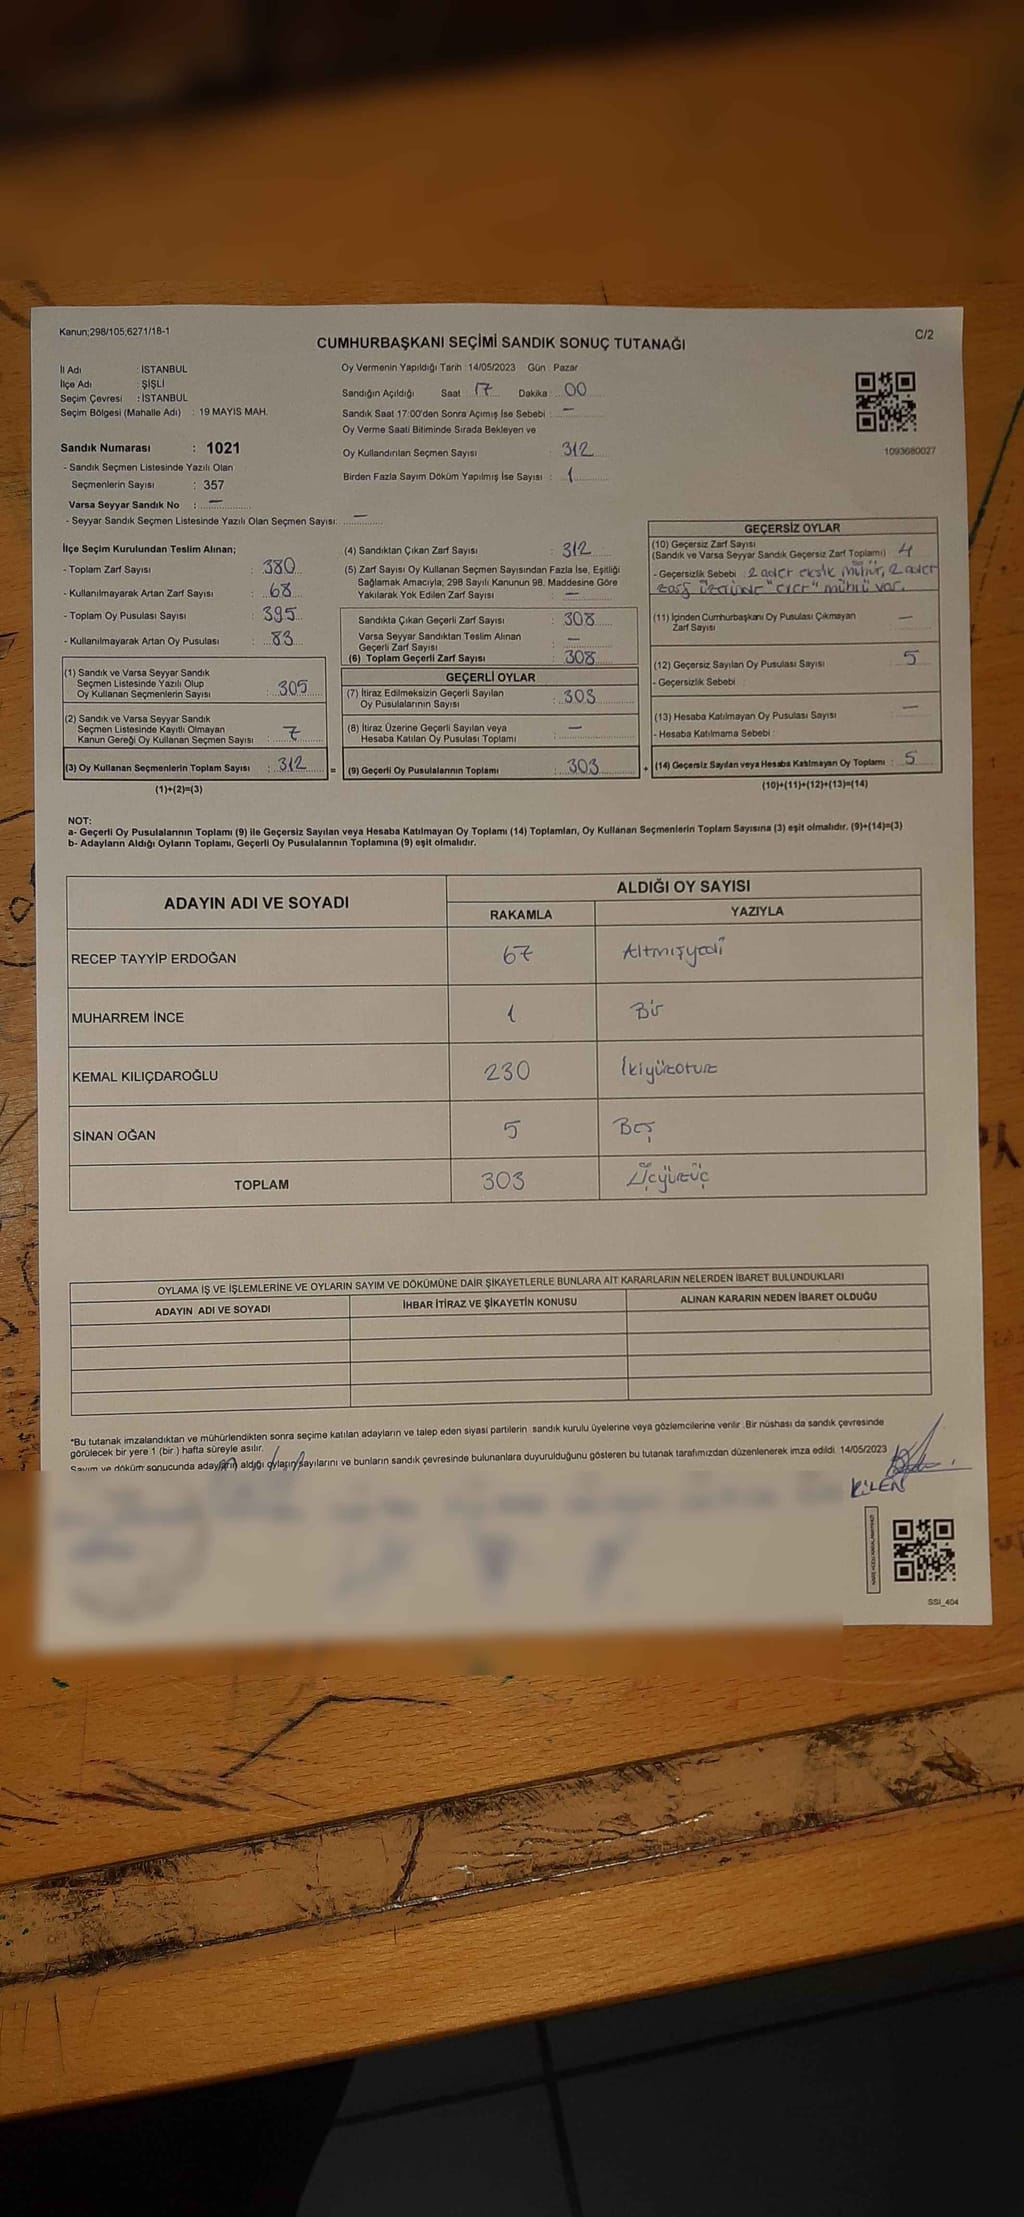 Kanun;298/105,6271/18-1
C/2
CUMHURBAŞKANI SEÇİMİ SANDIK SONUÇ TUTANAĞI
İl Adı : İSTANBUL
İlçe Adı : ŞİŞLİ
Seçim Çevresi : İSTANBUL
Seçim Bölgesi (Mahalle Adı) : 19 MAYIS MAH.
Oy Vermenin Yapıldığı Tarih :14/05/2023 Gün : Pazar
Sandığın Açıldığı Saat 17 Dakika : 00
Sandık Saat 17:00'den Sonra Açımış İse Sebebi : —
Oy Verme Saati Bitiminde Sırada Bekleyen ve
Oy Kullandırılan Seçmen Sayısı : 312
Birden Fazla Sayım Döküm Yapılmış İse Sayısı : 1
1093680027
Sandık Numarası : 1021
- Sandık Seçmen Listesinde Yazılı Olan
Seçmenlerin Sayısı : 357
Varsa Seyyar Sandık No : —
- Seyyar Sandık Seçmen Listesinde Yazılı Olan Seçmen Sayısı: —
İlçe Seçim Kurulundan Teslim Alınan;
- Toplam Zarf Sayısı : 380
- Kullanılmayarak Artan Zarf Sayısı : 68
- Toplam Oy Pusulası Sayısı : 395
- Kullanılmayarak Artan Oy Pusulası : 83
(1) Sandık ve Varsa Seyyar Sandık
Seçmen Listesinde Yazılı Olup
Oy Kullanan Seçmenlerin Sayısı : 305
(2) Sandık ve Varsa Seyyar Sandık
Seçmen Listesinde Kayıtlı Olmayan
Kanun Gereği Oy Kullanan Seçmen Sayısı : 7
(3) Oy Kullanan Seçmenlerin Toplam Sayısı : 312
(1)+(2)=(3)
(4) Sandıktan Çıkan Zarf Sayısı : 312
(5) Zarf Sayısı Oy Kullanan Seçmen Sayısından Fazla İse, Eşitliği
Sağlamak Amacıyla; 298 Sayılı Kanunun 98. Maddesine Göre
Yakılarak Yok Edilen Zarf Sayısı : —
Sandıkta Çıkan Geçerli Zarf Sayısı : 308
Varsa Seyyar Sandıktan Teslim Alınan
Geçerli Zarf Sayısı : —
(6) Toplam Geçerli Zarf Sayısı : 308
GEÇERLİ OYLAR
(7) İtiraz Edilmeksizin Geçerli Sayılan
Oy Pusulalarının Sayısı : 303
(8) İtiraz Üzerine Geçerli Sayılan veya
Hesaba Katılan Oy Pusulası Toplamı : —
= (9) Geçerli Oy Pusulalarının Toplamı : 303
GEÇERSİZ OYLAR
(10) Geçersiz Zarf Sayısı
(Sandık ve Varsa Seyyar Sandık Geçersiz Zarf Toplamı) : 4
- Geçersizlik Sebebi : 2 adet eksik mühür, 2 adet
zarf üzerinde "evet" mührü var.
(11) İçinden Cumhurbaşkanı Oy Pusulası Çıkmayan
Zarf Sayısı : —
(12) Geçersiz Sayılan Oy Pusulası Sayısı : 5
- Geçersizlik Sebebi :
(13) Hesaba Katılmayan Oy Pusulası Sayısı : —
- Hesaba Katılmama Sebebi :
+ (14) Geçersiz Sayılan veya Hesaba Katılmayan Oy Toplamı : 5
(10)+(11)+(12)+(13)=(14)
NOT:
a- Geçerli Oy Pusulalarının Toplamı (9) ile Geçersiz Sayılan veya Hesaba Katılmayan Oy Toplamı (14) Toplamları, Oy Kullanan Seçmenlerin Toplam Sayısına (3) eşit olmalıdır. (9)+(14)=(3)
b- Adayların Aldığı Oyların Toplamı, Geçerli Oy Pusulalarının Toplamına (9) eşit olmalıdır.
ADAYIN ADI VE SOYADI ALDIĞI OY SAYISI
RAKAMLA YAZIYLA
RECEP TAYYİP ERDOĞAN 67 Altmışyedi
MUHARREM İNCE 1 Bir
KEMAL KILIÇDAROĞLU 230 İkiyüzotuz
SİNAN OĞAN 5 Beş
TOPLAM 303 Üçyüzüç
OYLAMA İŞ VE İŞLEMLERİNE VE OYLARIN SAYIM VE DÖKÜMÜNE DAİR ŞİKAYETLERLE BUNLARA AİT KARARLARIN NELERDEN İBARET BULUNDUKLARI
ADAYIN ADI VE SOYADI İHBAR İTİRAZ VE ŞİKAYETİN KONUSU ALINAN KARARIN NEDEN İBARET OLDUĞU
*Bu tutanak imzalandıktan ve mühürlendikten sonra seçime katılan adayların ve talep eden siyasi partilerin sandık kurulu üyelerine veya gözlemcilerine verilir .Bir nüshası da sandık çevresinde
görülecek bir yere 1 (bir ) hafta süreyle asılır.
Sayım ve döküm sonucunda adayların aldığı oyların sayılarını ve bunların sandık çevresinde bulunanlara duyurulduğunu gösteren bu tutanak tarafımızdan düzenlenerek imza edildi. 14/05/2023
SSI_404